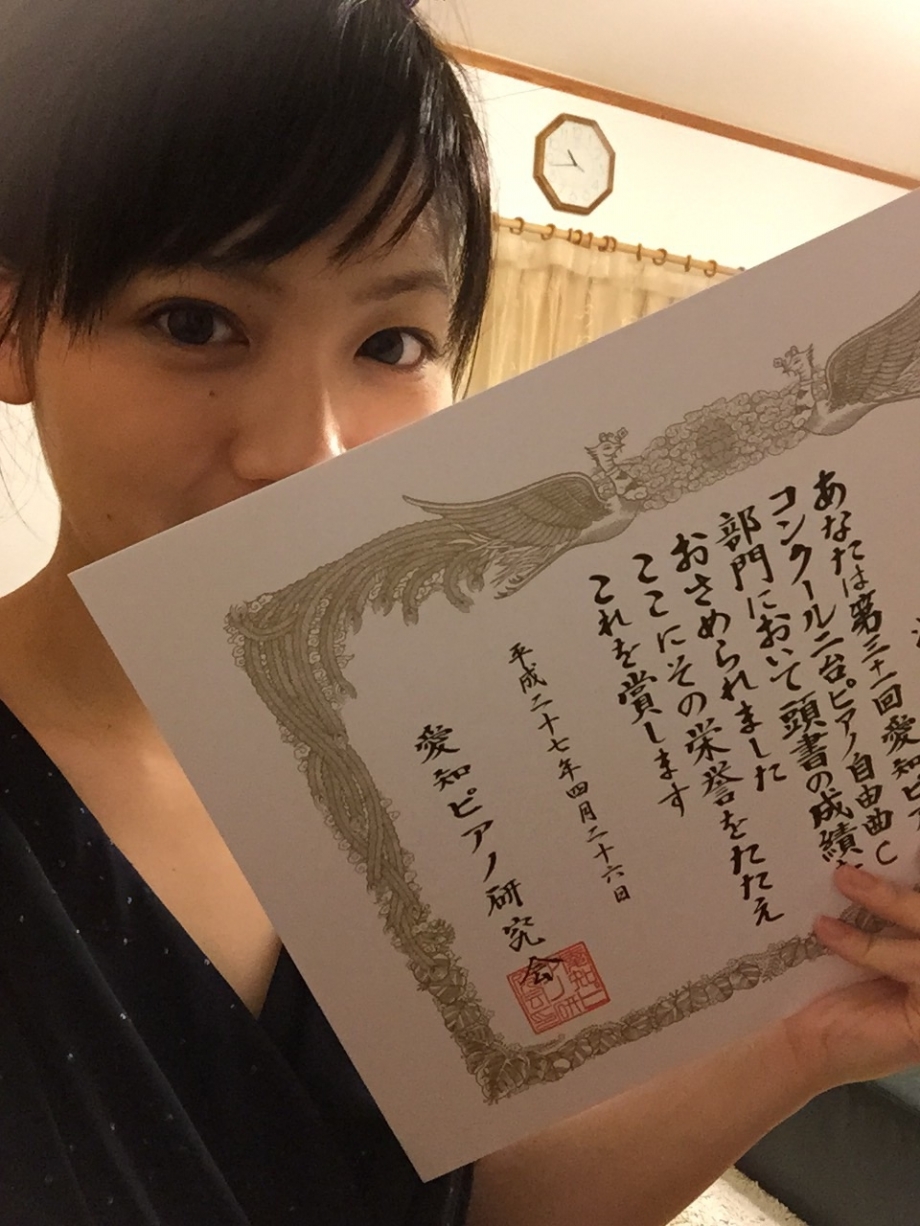 あなたは第三十一回愛知ピア
コンクール二台ピアノ自由曲C
部門において頭書の成績
おさめられました
ここにその栄誉をたたえ
これを賞します
平成二十七年四月二十六日
愛知ピアノ研究会